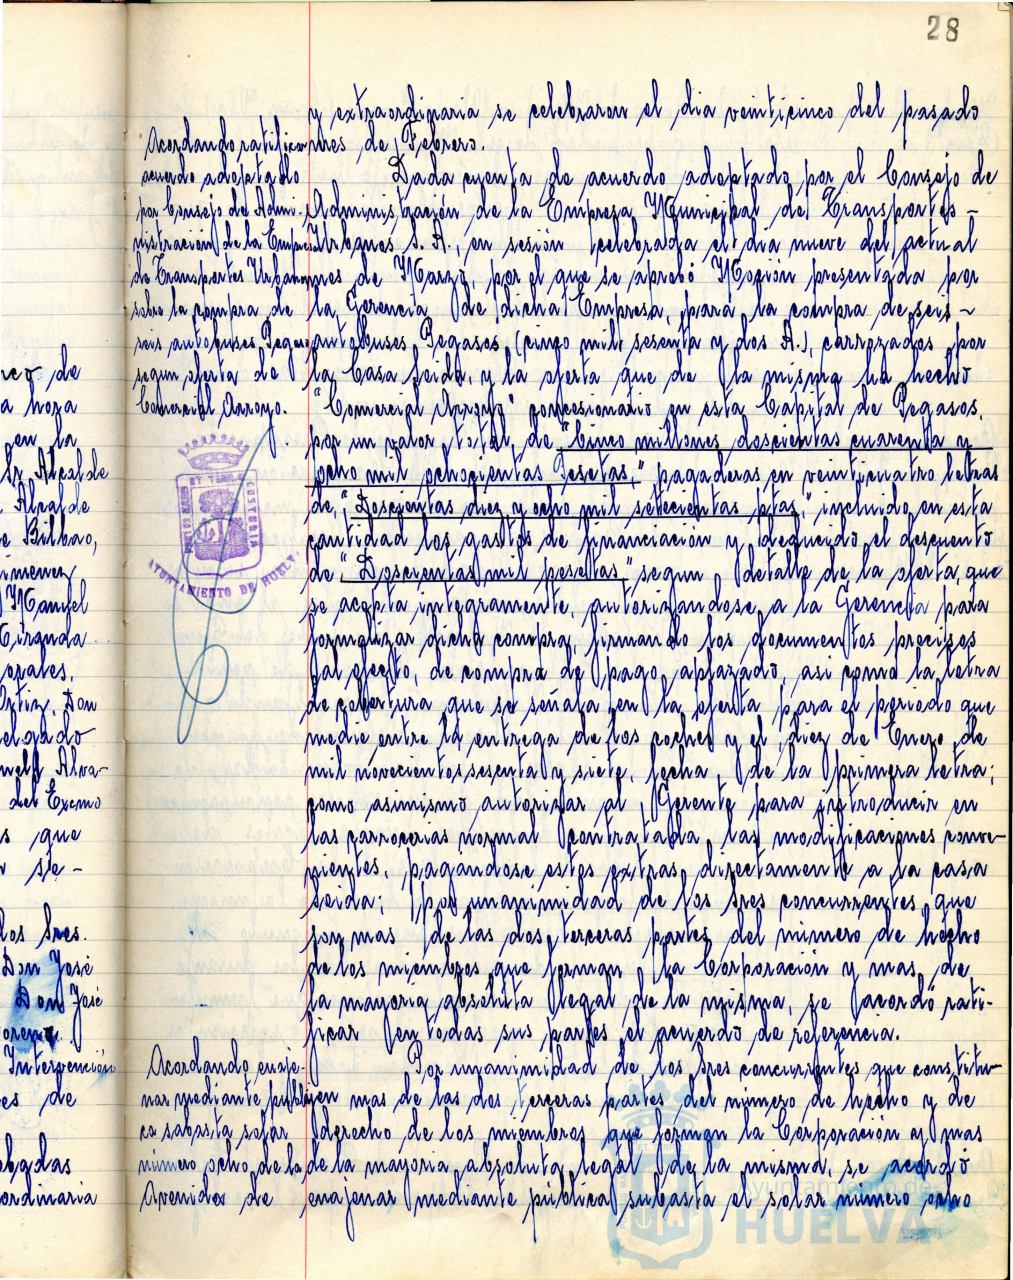 28
y extraordinaria se celebraron el dia veinticinco del pasado
mes de Febrero.
Dada cuenta de acuerdo adoptado por el Consejo de
Administración de la Empresa Municipal de Transportes-
Urbanos S.A., en sesión celebrada el dia nueve del actual
mes de Marzo, por el que se aprobó Moción presentada por
la Gerencia de dicha Empresa, para la compra de seis-
autobuses Pegasos (cinco mil sesenta y dos A.), carrozados por
la Casa Seida, y la oferta que de la misma ha hecho
"Comercial Arroyo" concesionario en esta Capital de Pegasos,
por un valor total, de "Cinco millones doscientas cuarenta y
ocho mil ochocientas Pesetas," pagaderas en veinticuatro letras
de "Doscientas diez y ocho mil setecientas ptas," incluido en esta
cantidad los gastos de financiación y deducido el descuento
de "Doscientas mil pesetas" segun detalle de la oferta, que
se acepta integramente, autorizandose a la Gerencia para
formalizar dicha compra, firmando los documentos precisos
al efecto, de compra de pago aplazado, asi como la letra
de cobertura que se señala en la oferta para el periodo que
medie entre la entrega de los coches y el diez de Enero de
mil novecientos sesenta y siete, fecha de la primera letra;
como asimismo autorizar al Gerente para introducir en
las carrocerias normal contratada las modificaciones conve-
nientes, pagandose estos extras directamente a la casa
Seida; por unanimidad de los Sres concurrentes que
son mas de las dos terceras partes del número de hecho
de los miembros que forman la Corporación y mas de
la mayoria absoluta legal de la misma, se acordó rati-
ficar en todas sus partes el acuerdo de referencia.
Por unanimidad de los Sres concurrentes que constitu-
yen mas de las dos terceras partes del número de hecho y de
derecho de los miembros que forman la Corporación y mas
de la mayoria absoluta legal de la misma, se acordó
enajenar mediante pública subasta el solar número ocho
Acordando ratificar
acuerdo adoptado
por Consejo de Admi-
nistración de la Empresa
de Transportes Urbanos
sobre la compra de
seis autobuses Pegaso
segun oferta de
Comercial Arroyo.
AYUNTAMIENTO DE HUELVA
Acordando enaje-
nar mediante públi-
ca subasta solar
número ocho de la
Avenida de
de
a hora
en la
Sr. Alcalde
Alcalde
Bilbao,
Manuel
Miranda
Ortiz, Don
Delgado
Alva-
del Excmo
que
se-
los Sres.
Don José
Don José
Intervención
es de
ordinaria
Ayuntamiento de
HUELVA